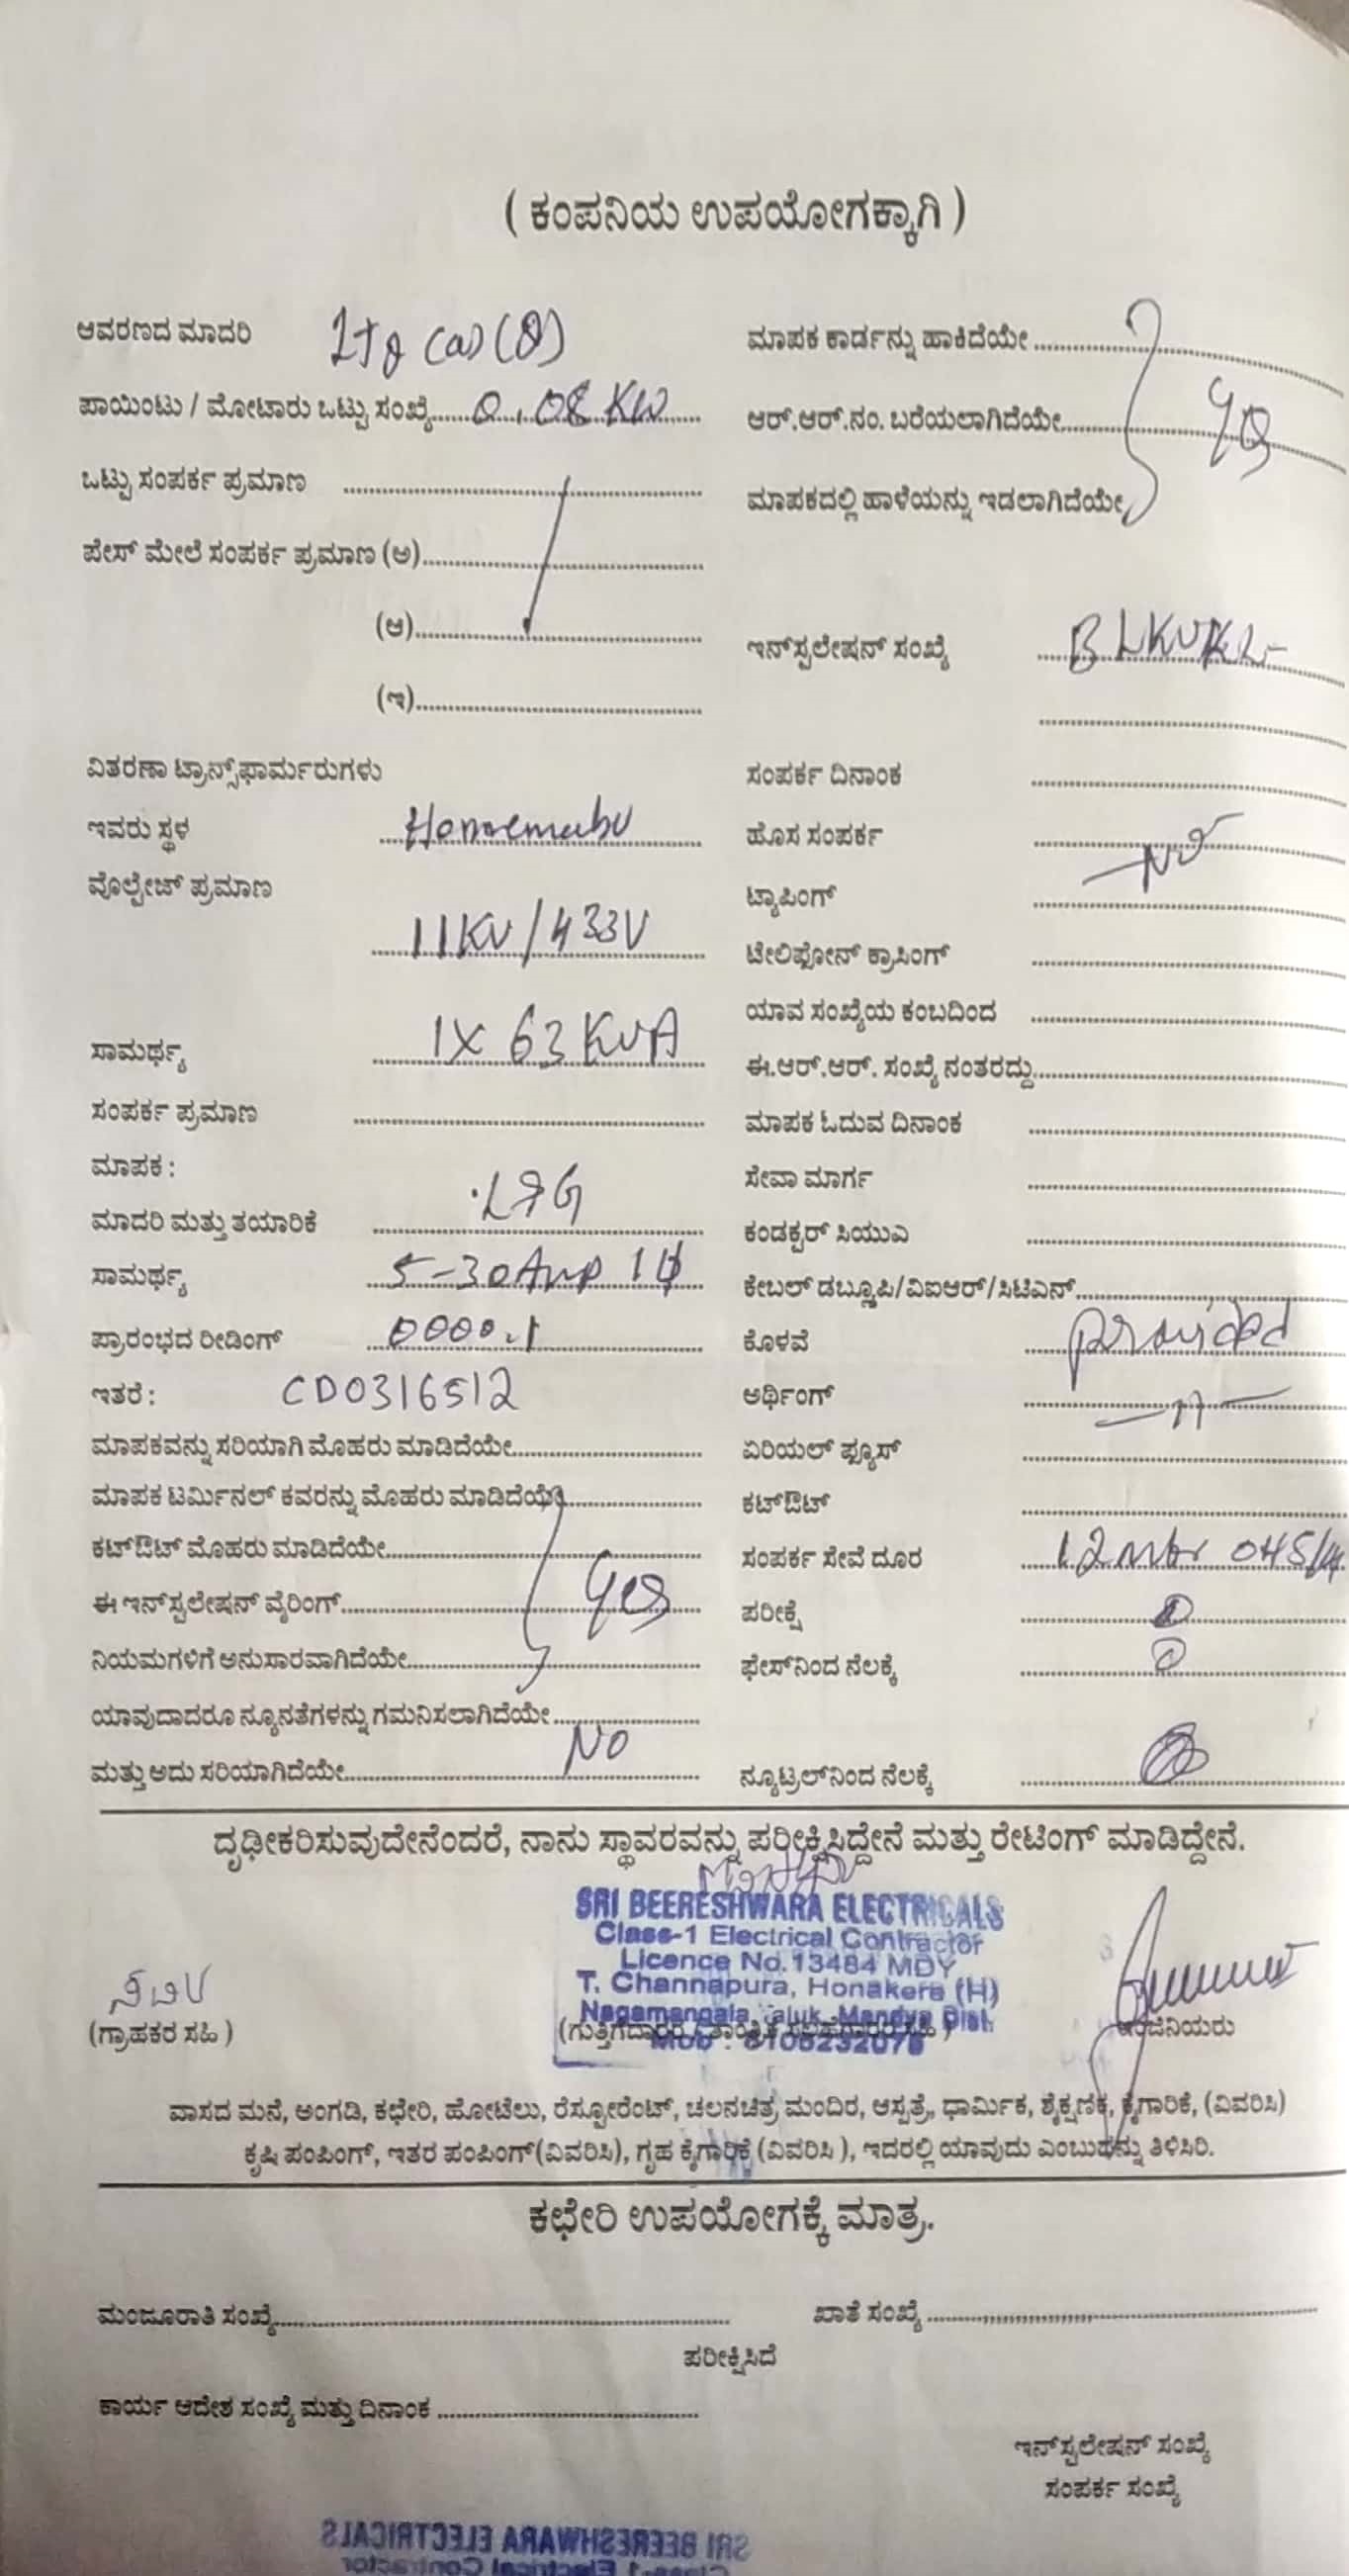 ( ಕಂಪನಿಯ ಉಪಯೋಗಕ್ಕಾಗಿ )
ಆವರಣದ ಮಾದರಿ
ಪಾಯಿಂಟು / ಮೋಟಾರು ಒಟ್ಟು ಸಂಖ್ಯೆ 0.08 KW
ಒಟ್ಟು ಸಂಪರ್ಕ ಪ್ರಮಾಣ
ಪೇಸ್ ಮೇಲೆ ಸಂಪರ್ಕ ಪ್ರಮಾಣ (ಅ)
(ಆ)
(ಇ)
ವಿತರಣಾ ಟ್ರಾನ್ಸ್‌ಫಾರ್ಮರುಗಳು
ಇವರು ಸ್ಥಳ
ವೊಲ್ಟೇಜ್ ಪ್ರಮಾಣ
11KV/433V
ಸಾಮರ್ಥ್ಯ 1X 63 KVA
ಸಂಪರ್ಕ ಪ್ರಮಾಣ
ಮಾಪಕ :
ಮಾದರಿ ಮತ್ತು ತಯಾರಿಕೆ L&G
ಸಾಮರ್ಥ್ಯ 5-30 Amp 1ϕ
ಪ್ರಾರಂಭದ ರೀಡಿಂಗ್ 0000.1
ಇತರೆ : CD0316512
ಮಾಪಕವನ್ನು ಸರಿಯಾಗಿ ಮೊಹರು ಮಾಡಿದೆಯೇ
ಮಾಪಕ ಟರ್ಮಿನಲ್ ಕವರನ್ನು ಮೊಹರು ಮಾಡಿದೆಯೇ
ಕಟ್‌ಔಟ್ ಮೊಹರು ಮಾಡಿದೆಯೇ
ಈ ಇನ್‌ಸ್ಟಲೇಷನ್ ವೈರಿಂಗ್ yes
ನಿಯಮಗಳಿಗೆ ಅನುಸಾರವಾಗಿದೆಯೇ
ಯಾವುದಾದರೂ ನ್ಯೂನತೆಗಳನ್ನು ಗಮನಿಸಲಾಗಿದೆಯೇ
ಮತ್ತು ಅದು ಸರಿಯಾಗಿದೆಯೇ NO
ಮಾಪಕ ಕಾರ್ಡನ್ನು ಹಾಕಿದೆಯೇ
ಆರ್.ಆರ್.ನಂ. ಬರೆಯಲಾಗಿದೆಯೇ
ಮಾಪಕದಲ್ಲಿ ಹಾಳೆಯನ್ನು ಇಡಲಾಗಿದೆಯೇ
ಇನ್‌ಸ್ಟಲೇಷನ್ ಸಂಖ್ಯೆ
ಸಂಪರ್ಕ ದಿನಾಂಕ
ಹೊಸ ಸಂಪರ್ಕ
ಟ್ಯಾಪಿಂಗ್
ಟೇಲಿಫೋನ್ ಕ್ರಾಸಿಂಗ್
ಯಾವ ಸಂಖ್ಯೆಯ ಕಂಬದಿಂದ
ಈ.ಆರ್.ಆರ್. ಸಂಖ್ಯೆ ನಂತರದ್ದು
ಮಾಪಕ ಓದುವ ದಿನಾಂಕ
ಸೇವಾ ಮಾರ್ಗ
ಕಂಡಕ್ಟರ್ ಸಿಯುಎ
ಕೇಬಲ್ ಡಬ್ಲ್ಯೂಪಿ/ವಿಐಆರ್/ಸಿಟಿಎನ್
ಕೊಳವೆ provided
ಅರ್ಥಿಂಗ್ —11—
ಏರಿಯಲ್ ಫ್ಯೂಸ್
ಕಟ್‌ಔಟ್
ಸಂಪರ್ಕ ಸೇವೆ ದೂರ
ಪರೀಕ್ಷೆ
ಫೇಸ್‌ನಿಂದ ನೆಲಕ್ಕೆ
ನ್ಯೂಟ್ರಲ್‌ನಿಂದ ನೆಲಕ್ಕೆ
ದೃಢೀಕರಿಸುವುದೇನೆಂದರೆ, ನಾನು ಸ್ಥಾವರವನ್ನು ಪರೀಕ್ಷಿಸಿದ್ದೇನೆ ಮತ್ತು ರೇಟಿಂಗ್ ಮಾಡಿದ್ದೇನೆ.
SRI BEERESHWARA ELECTRICALS
Class-1 Electrical Contractor
Licence No.13484 MDY
T. Channapura, Honakere (H)
Nagamangala Taluk, Mandya Dist.
(ಗ್ರಾಹಕರ ಸಹಿ)
ಇಂಜಿನಿಯರು
ವಾಸದ ಮನೆ, ಅಂಗಡಿ, ಕಛೇರಿ, ಹೋಟೆಲು, ರೆಸ್ಟೋರೆಂಟ್, ಚಲನಚಿತ್ರ ಮಂದಿರ, ಆಸ್ಪತ್ರೆ, ಧಾರ್ಮಿಕ, ಶೈಕ್ಷಣಿಕ, ಕೈಗಾರಿಕೆ, (ವಿವರಿಸಿ)
ಕೃಷಿ ಪಂಪಿಂಗ್, ಇತರ ಪಂಪಿಂಗ್(ವಿವರಿಸಿ), ಗೃಹ ಕೈಗಾರಿಕೆ (ವಿವರಿಸಿ ), ಇದರಲ್ಲಿ ಯಾವುದು ಎಂಬುದನ್ನು ತಿಳಿಸಿರಿ.
ಕಛೇರಿ ಉಪಯೋಗಕ್ಕೆ ಮಾತ್ರ.
ಮಂಜೂರಾತಿ ಸಂಖ್ಯೆ
ಖಾತೆ ಸಂಖ್ಯೆ
ಪರೀಕ್ಷಿಸಿದೆ
ಕಾರ್ಯ ಆದೇಶ ಸಂಖ್ಯೆ ಮತ್ತು ದಿನಾಂಕ
ಇನ್‌ಸ್ಟಲೇಷನ್ ಸಂಖ್ಯೆ
ಸಂಪರ್ಕ ಸಂಖ್ಯೆ
SRI BEERESHWARA ELECTRICALS